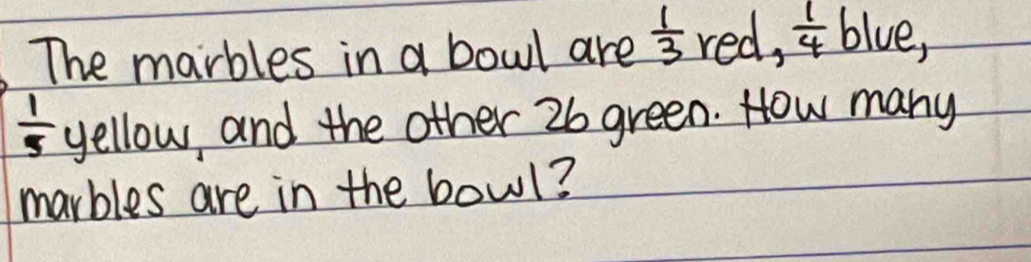 The marbles in a bowl are 1/3 red, 1/4 blue,
1/5 yellow, and the other 26 green. How many
marbles are in the bowl?